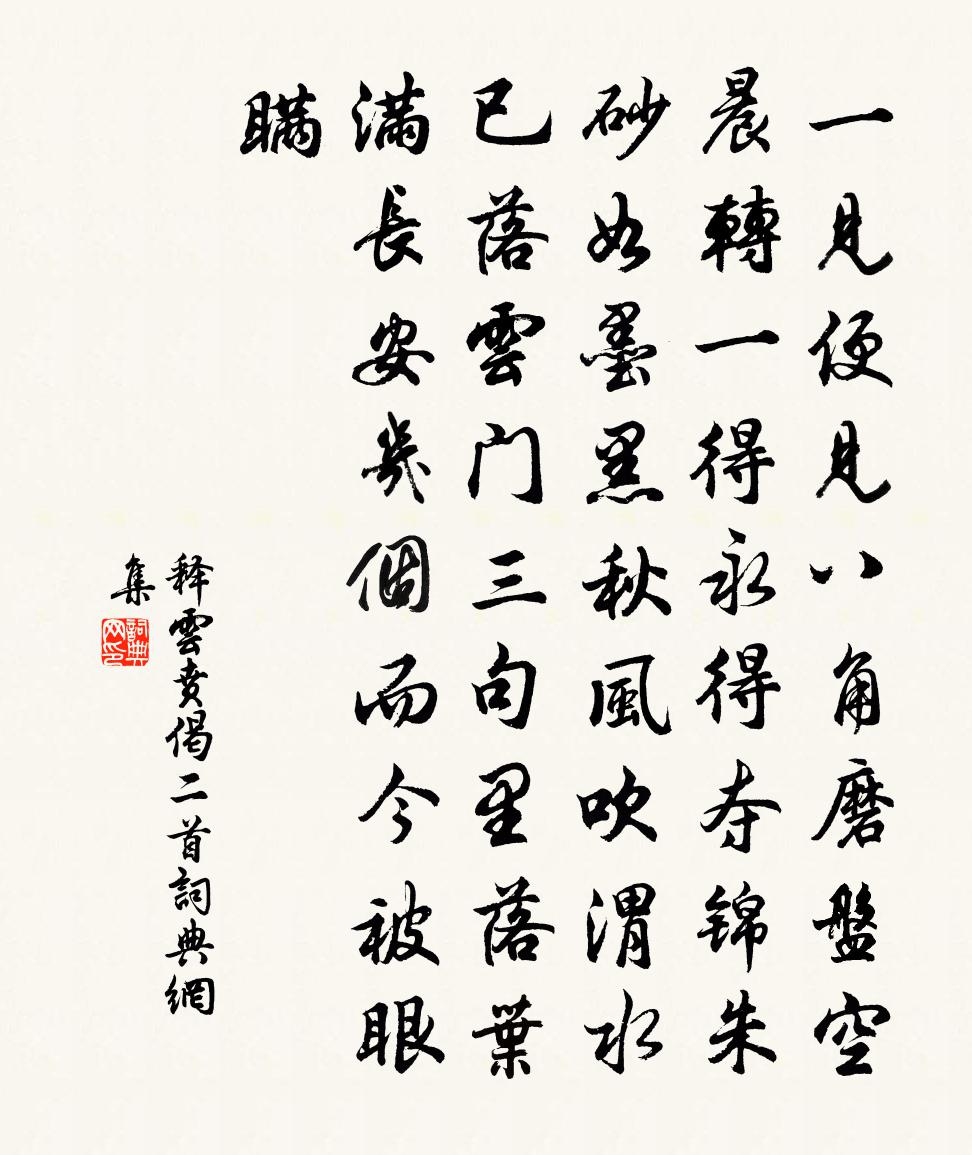 一見便見八角磨盤空
晨轉一得永得夺锦朱
砂如墨黑秋風吹渭水
已落雲门三句里落葉
滿長安幾個而今被眼
瞞
释雲賁偈二首詞典網
集
詞典
网印